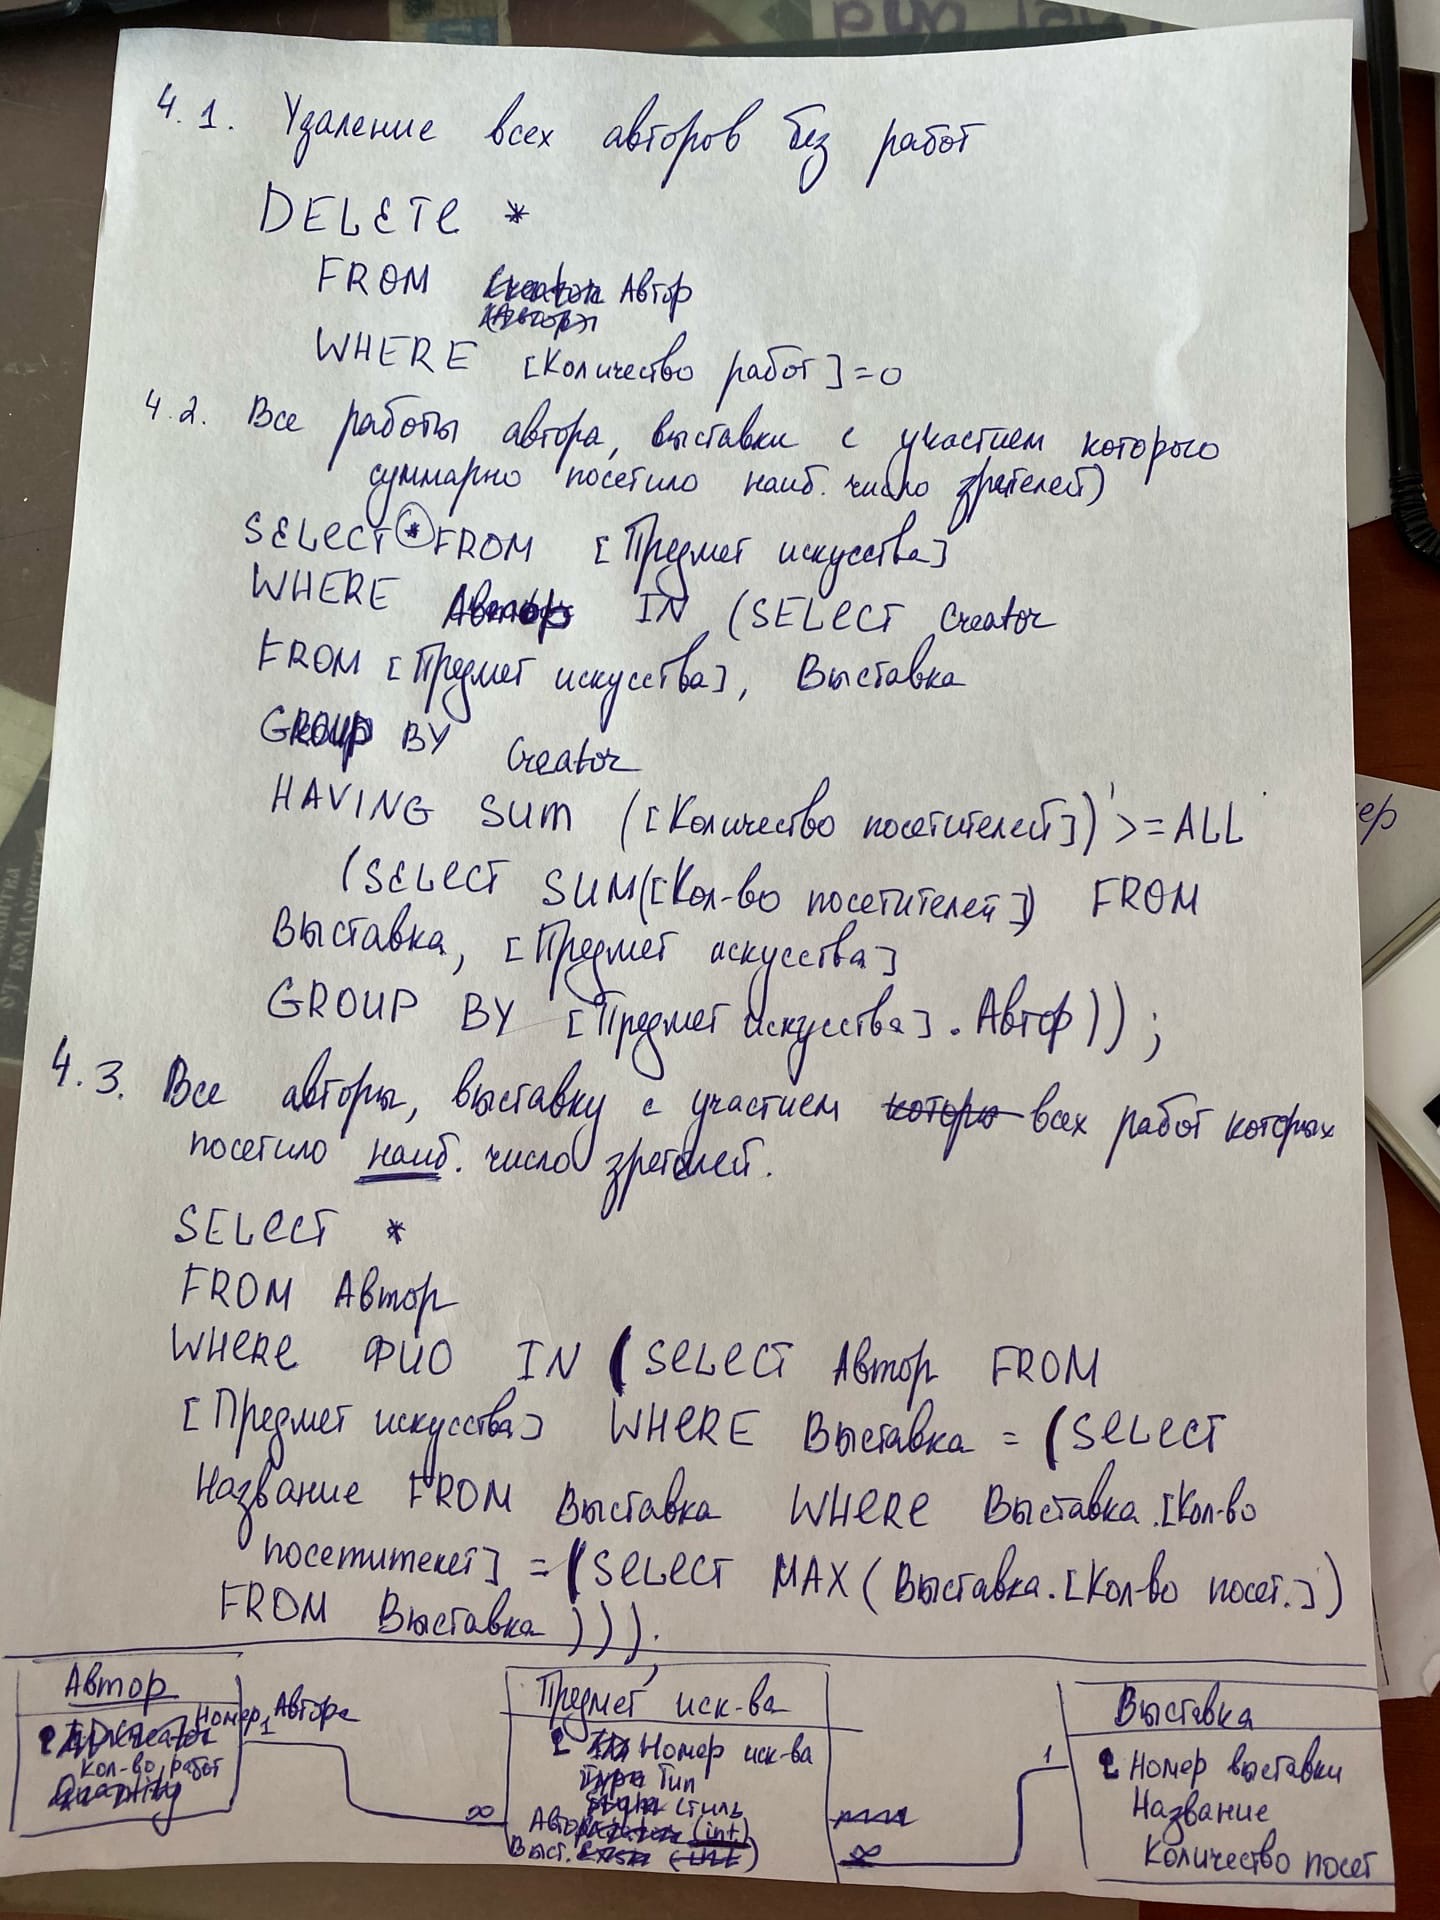 4.1. Удаление всех авторов без работ
DELETE *
FROM Автор
WHERE [Количество работ]=0
4.2. Все работы автора, выставки с участием которого
суммарно посетило наиб. число зрителей)
SELECT * FROM [Предмет искусства]
WHERE Автор IN (SELECT Creator
FROM [Предмет искусства], Выставка
GROUP BY Creator
HAVING SUM ([Количество посетителей]) >=ALL
(SELECT SUM([Кол-во посетителей]) FROM
Выставка, [Предмет искусства]
GROUP BY [Предмет искусства].Автор));
4.3. Все авторы, выставку с участием всех работ которых
посетило наиб. число зрителей.
SELECT *
FROM Автор
WHERE ФИО IN (SELECT Автор FROM
[Предмет искусства] WHERE Выставка = (SELECT
Название FROM Выставка WHERE Выставка.[Кол-во
посетителей] = (SELECT MAX(Выставка.[Кол-во посет.])
FROM Выставка)));
Автор
Номер Автора
кол-во работ
1
∞
Предмет иск-ва
Номер иск-ва
Тип
стиль
Автор (int)
Выст.
∞
1
Выставка
Номер выставки
Название
Количество посет
ер